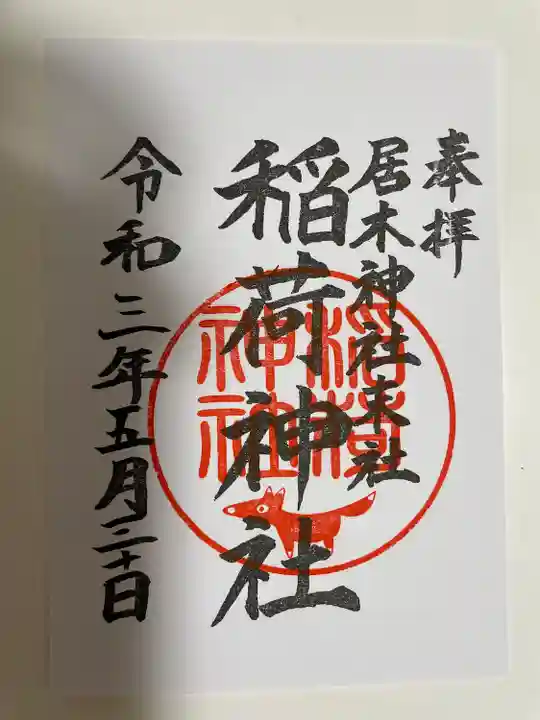 奉拝
居木神社末社
稲荷神社
令和三年五月三十日
稲荷神社